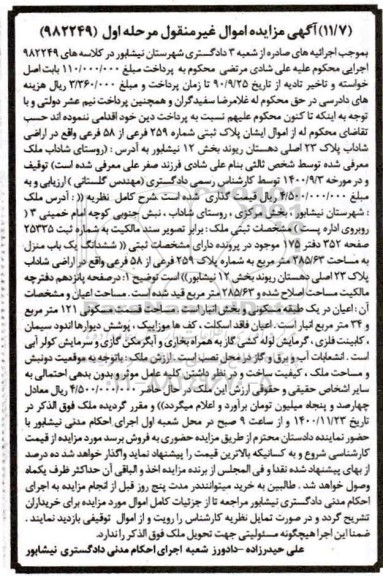 (۱۱/۷) آگهی مزایده اموال غیرمنقول مرحله اول (۹۸۲۲۴۹)
بموجب اجرائیه های صادره از شعبه ۳ دادگستری شهرستان نیشابور در کلاسه های ۹۸۲۲۴۹
اجرایی محکوم علیه علی شادی مرتضی محکوم به پرداخت مبلغ ۱۱۰/۰۰۰/۰۰۰ بابت اصل
خواسته و تاخیر تادیه از تاریخ ۹۰/۹/۲۵ تا زمان پرداخت و مبلغ ۳/۳۶۰/۰۰۰ ریال هزینه
های دادرسی در حق محکوم له غلامرضا سفیدگران و همچنین پرداخت نیم عشر دولتی و با
توجه به اینکه تا کنون محکوم علیهم نسبت به پرداخت دین خود اقدامی ننموده اند حسب
تقاضای محکوم له از اموال ایشان پلاک ثبتی شماره ۲۵۹ فرعی از ۵۸ فرعی واقع در اراضی
شاداب پلاک ۲۳ اصلی دهستان ریوند بخش ۱۲ نیشابور به آدرس : (روستای شاداب ملک
معرفی شده توسط شخص ثالثی بنام علی شادی فرزند صفر علی معرفی شده است) توقیف
و در مورخه ۱۴۰۰/۹/۳ توسط کارشناس رسمی دادگستری (مهندس گلستانی ) ارزیابی و به
مبلغ ۴/۵۰۰/۰۰۰/۰۰۰ ریال قیمت گذاری شده است شرح کامل نظریه (( : آدرس ملک
: شهرستان نیشابور ، بخش مرکزی ، روستای شاداب ، نبش جنوبی کوچه امام خمینی ۳ (
روبروی اداره پست ) مشخصات ثبتی ملک : برابر تصویر سند مالکیت به شماره ثبت ۲۵۳۳۵
صفحه ۳۵۲ دفتر ۱۷۵ موجود در پرونده دارای مشخصات ثبتی (( ششدانگ یک باب منزل
به مساحت ۲۸۵/۶۳ متر مربع به شماره پلاک ۲۵۹ فرعی از ۵۸ فرعی واقع در اراضی شاداب
پلاک ۲۳ اصلی دهستان ریوند بخش ۱۲ نیشابور)) است توضیح ۱: درصفحه پانزدهم دفترچه
مالکیت مساحت اصلاح شده و ۲۸۵/۶۳ متر مربع قید شده است . مساحت اعیان و مشخصات
آن : اعیان در یک طبقه مسکونی و بخش انبار است . مساحت قسمت مسکونی ۱۲۱ متر مربع
و ۳۴ متر مربع انبار است. اعیان فاقد اسکلت ، کف ها موزاییک ، پوشش دیوارها اندود سیمان
، کابینت فلزی ، گرمایش لوله کشی گاز به همراه بخاری و آبگرمکن گازی و سرمایش کولر آبی
است . انشعابات آب و برق و گاز در محل نصب است . ارزش ملک : باتوجه به موقعیت دونبش
و مساحت ملک ، کیفیت ساخت و در نظر داشتن کلیه عامل موثر و بدون بدهی احتمالی به
سایر اشخاص حقیقی و حقوقی ارزش این ملک در حال حاضر ۴/۵۰۰/۰۰۰/۰۰۰ ریال معادل
چهارصد و پنجاه میلیون تومان برآورد و اعلام میگردد)) و مقرر گردیده ملک فوق الذکر در
تاریخ ۱۴۰۰/۱۱/۲۳ و از ساعت ۹ صبح در محل شعبه اول اجرای احکام مدنی نیشابور با
حضور نماینده دادستان محترم از طریق مزایده حضوری به فروش برسد مورد مزایده از قیمت
کارشناسی شروع و به کسانیکه بالاترین قیمت را پیشنهاد نماید واگذار خواهد شد ده درصد
از بهای پیشنهاد شده نقدا و فی المجلس از برنده مزایده اخذ و الباقی آن حداکثر ظرف یکماه
وصول خواهد شد . طالبین به خرید میتوانند در مدت پنج روز قبل از انجام مزایده به اجرای
احکام مدنی دادگستری نیشابور مراجعه تا از جزئیات کامل اموال مورد مزایده برای خریداران
تشریح گردد و در صورت تمایل نظریه کارشناس را رویت و از اموال توقیفی بازدید نمایند .
ضمنا این اجرا هیچگونه مسئولیتی جهت تحویل ملک فوق الذکر را ندارد.
علی حیدرزاده -دادورز شعبه اجرای احکام مدنی دادگستری نیشابور